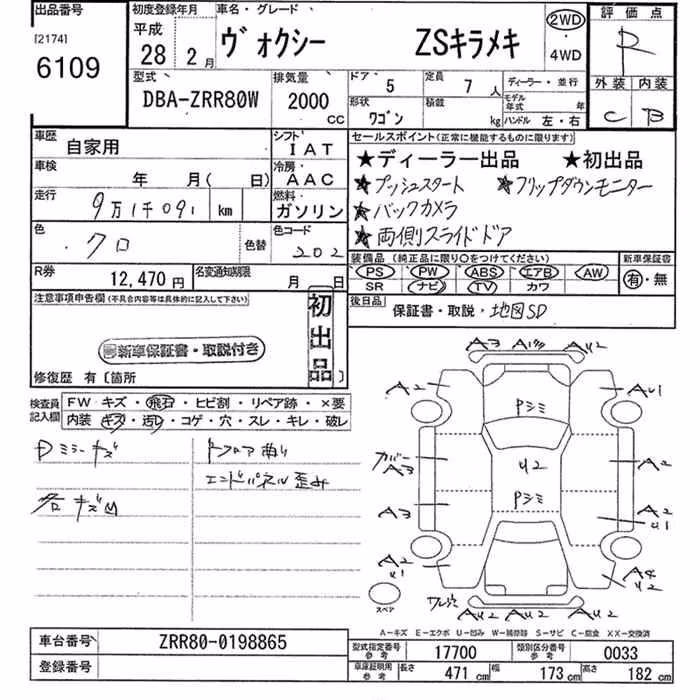 出品番号
[2174]
6109
初度登録年月
平成
28 2月
車名・グレード
ヴォクシー ZSキラメキ
2WD
・
4WD
評価点
R
外装 内装
C B
型式
DBA-ZRR80W
排気量
2000
CC
ドア
5
定員
7 人
形状
ワゴン
積載
kg
ディーラー・並行
モデル年 年
ハンドル 左・右
車歴
自家用
シフト
IAT
車検
年 月( 日)
冷房
AAC
走行
9万1千091 km
燃料
ガソリン
色
クロ
色替
色コード
202
R券
12,470 円
名変通知期限
月 日
セールスポイント(正常に機能するものに限ります)
★ディーラー出品 ★初出品
★プッシュスタート ★フリップダウンモニター
★バックカメラ
★両側スライドドア
装備品(純正品に限り○をつけてください)
PS PW ABS エアB AW
SR ナビ TV カワ
新車保証書
有・無
後日品
保証書・取説・地図SD
注意事項申告欄(不具合内容等は具体的に記入して下さい)
新車保証書・取説付き
初出品
修復歴 有〔箇所 〕
検査員
記入欄
FW キズ・飛石・ヒビ割・リペア跡・×要
内装 キズ・汚レ・コゲ・穴・スレ・キレ・破レ
Dミラーキズ
各キズ凹
トフロア曲り
エンドパネル歪み
A3 A1 AU2
A2 AU1
Pシミ
カバー
A3 U2 A2
Pシミ
A3 A2
U1
A2
U1 A4
U2
ワレ穴
AU2 AU2 AU2
スペア
A-キズ E-エクボ U-凹み W-補修跡 S-サビ C-腐食 XX-交換済
車台番号
ZRR80-0198865
登録番号
型式指定番号
参考
17700
類別区分番号
参考
0033
車庫証明用
参考
長さ 471 cm 幅 173 cm 高さ 182 cm